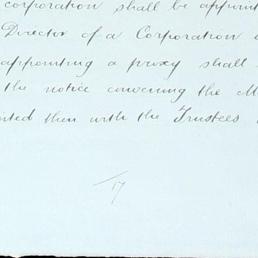 corporation shall be
Director of a Corporation
appointing a proxy shall
the notice convening the
then with the Trustees
17